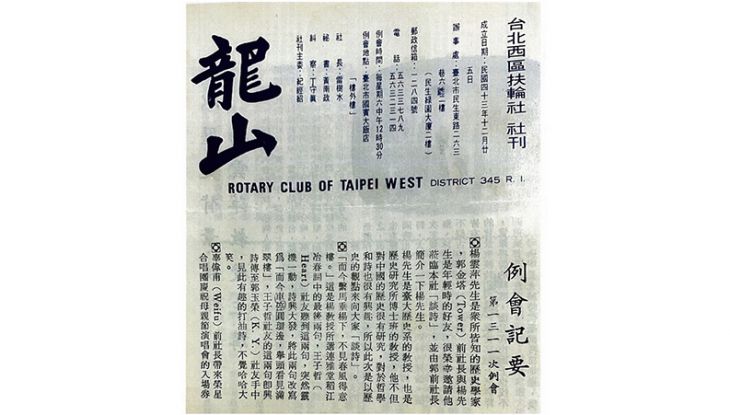 台北西區扶輪社 社刊
成立日期：民國四十三年十二月廿
五日
辦事處：臺北市民生東路二六三
巷六號二樓
（民生綠園大廈二樓）
郵政信箱：一二八四號
電話：五六三三七八九
五六三二三一四
例會時間：每星期六中午12時30分
例會地點：臺北市國賓大飯店
「樓外樓」
社長：雷樹水
祕書：黃南政
糾察：丁守真
社刊主委：紀經紹
龍山
ROTARY CLUB OF TAIPEI WEST DISTRICT 345 R. I.
例會記要
第一三一一次例會
楊雲萍先生是眾所皆知的歷史學家
，郭金塔（Tower）前社長與楊先
生是年輕時的好友，很榮幸邀請他
蒞臨本社「談詩」，並由郭前社長
簡介一下楊先生。
楊先生是臺大歷史系的教授，也是
歷史研究所博士班的教授，他不但
對中國的歷史很有研究，對於哲學
和詩也很有興趣，所以此次是以歷
史的觀點來向大家「談詩」。
「而今繫馬垂楊下，不見春風得意
樓。」這是楊教授所選連雅堂稻江
冶春詞中的最後兩句，王子哲（
Heart）社友聽到這兩句，突然靈
機一動，詩興大發，將此兩句改寫
爲「而今車繞圓環邊，舉頭看見滿
翠樓」。王子哲社友的這兩句即興
詩傳至郭玉榮（K. Y.）社友手中
，見此有趣的打油詩，不覺哈哈大
笑。
辜偉甫（Weifu）前社長帶來榮星
合唱團慶祝母親節演唱會的入場券